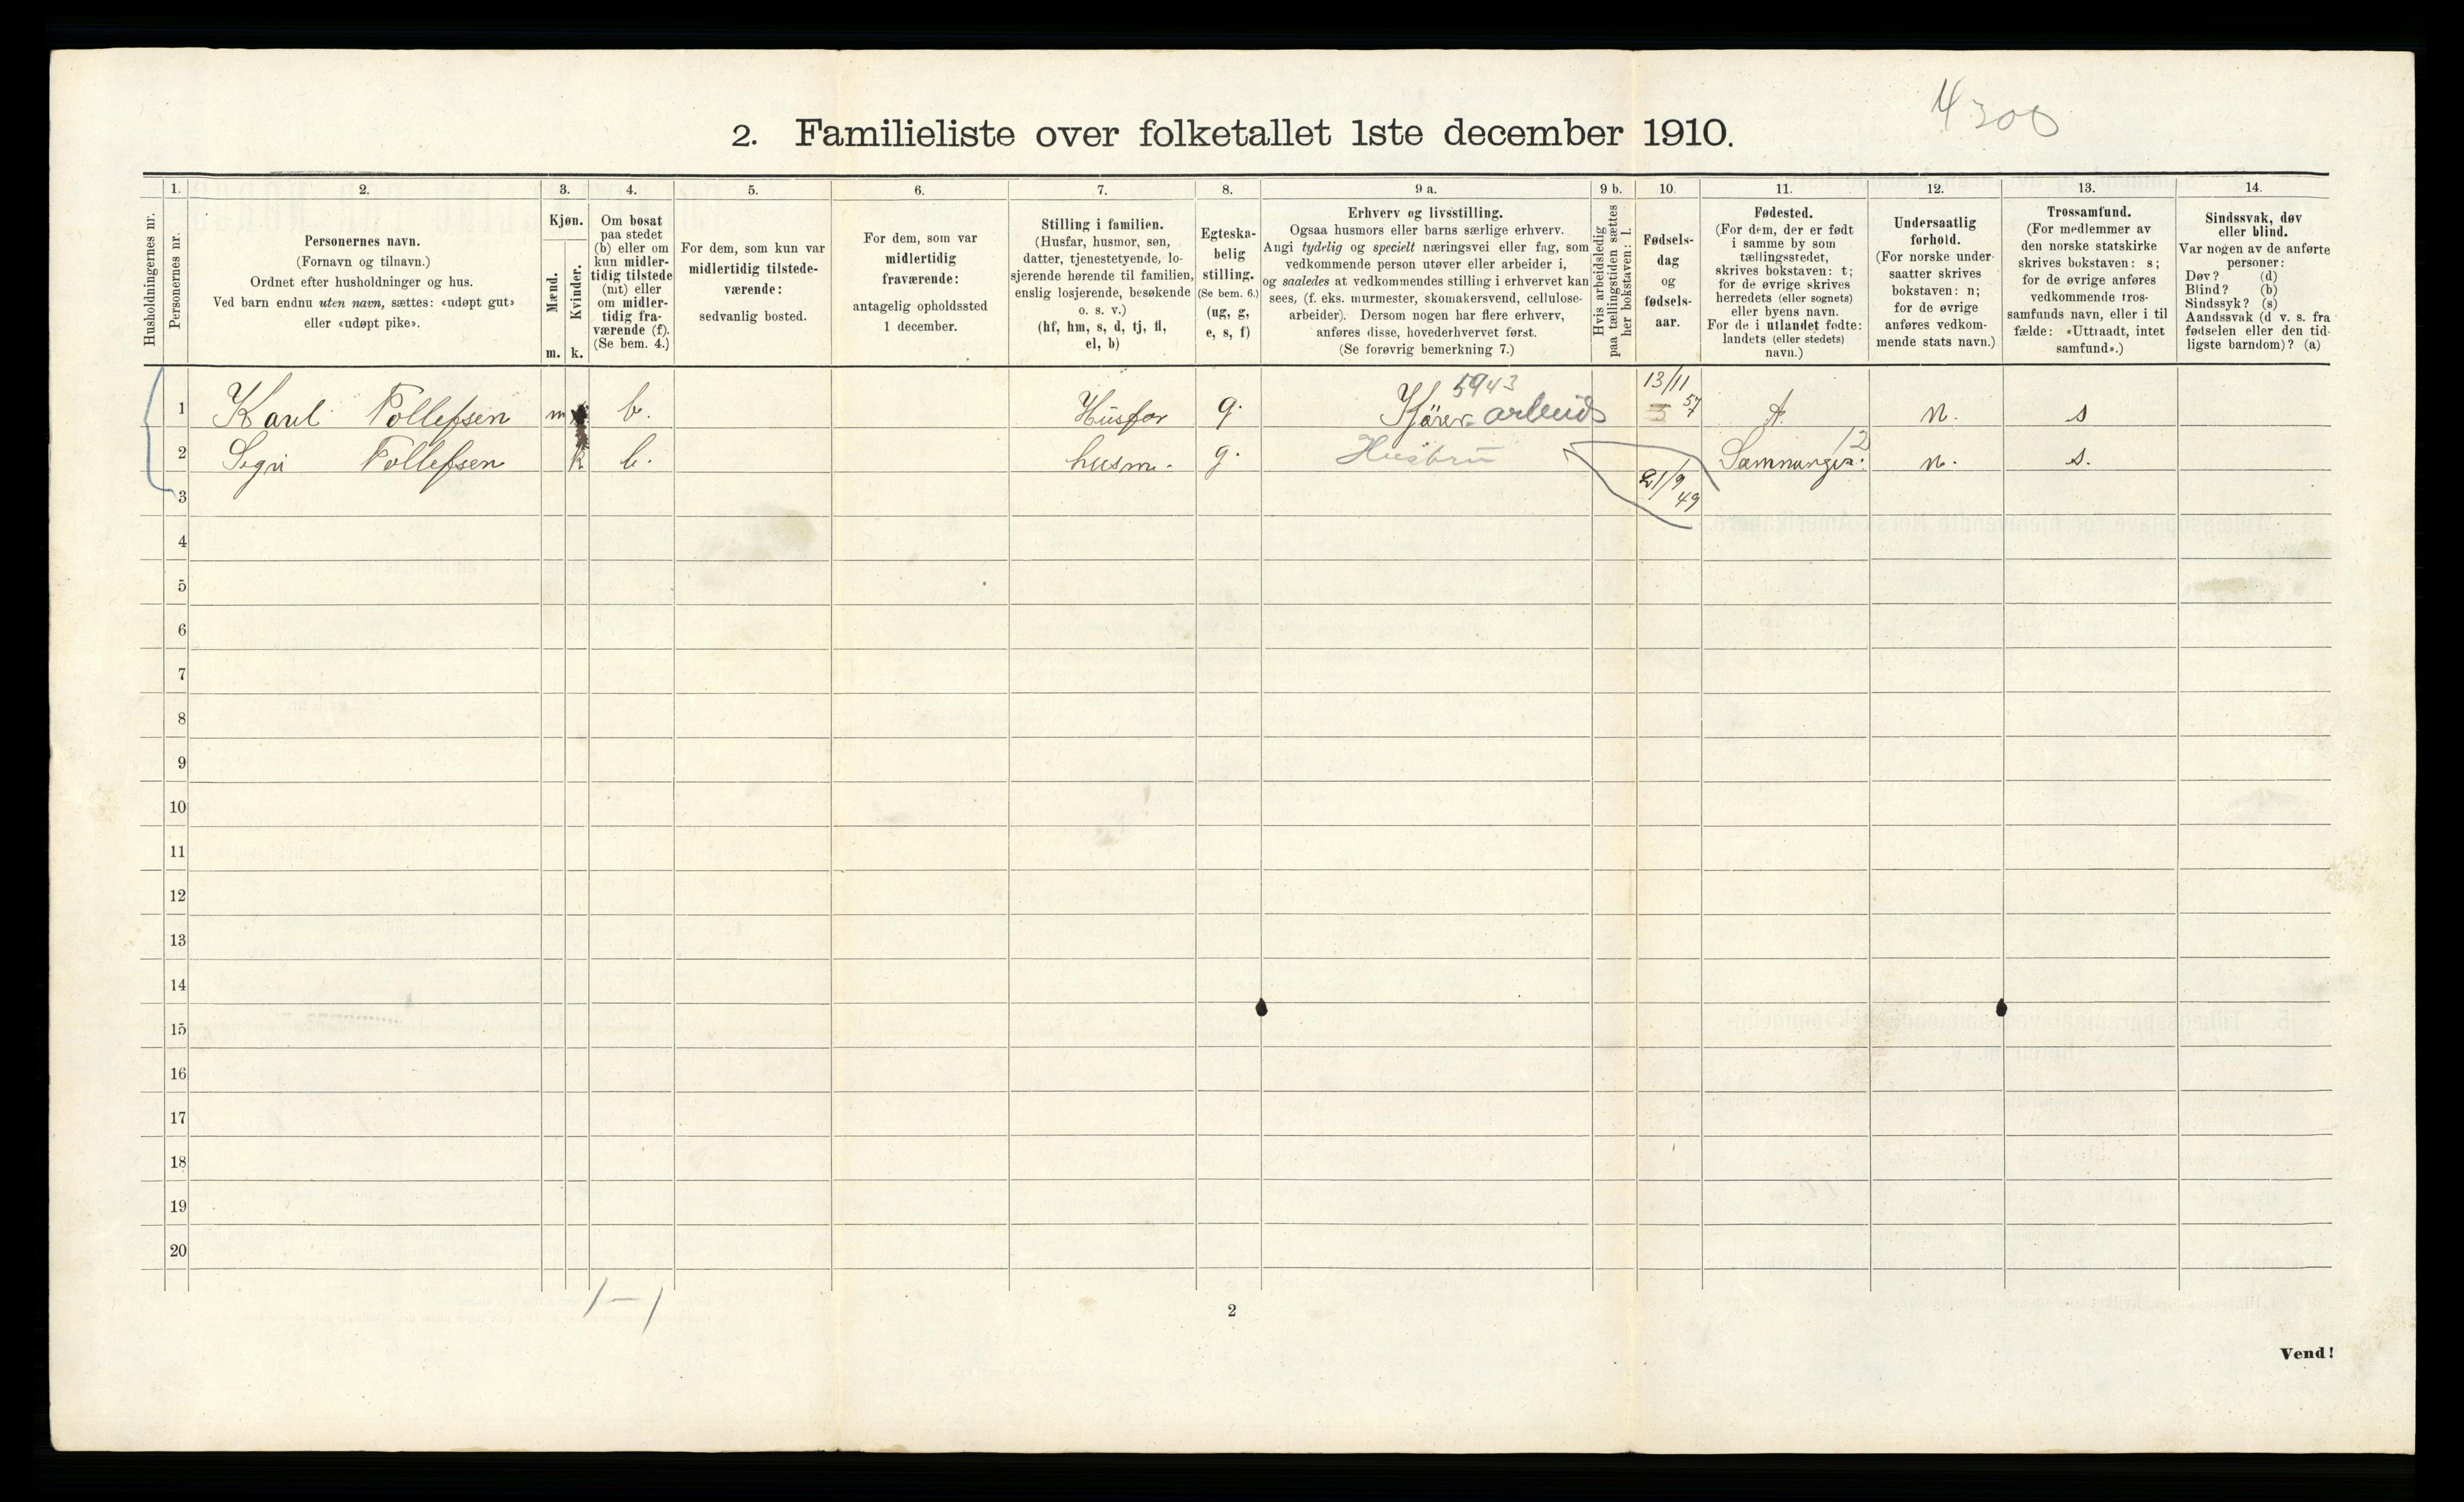 4300
2. Familieliste over folketallet 1ste december 1910.
Husholdningernes nr.
1.
Personernes nr.
2.
Personernes navn.
(Fornavn og tilnavn.)
Ordnet efter husholdninger og hus.
Ved barn endnu uten navn, sættes: «udøpt gut»
eller «udøpt pike».
3.
Kjøn.
Mænd.
m.
Kvinder.
k.
4.
Om bosat
paa stedet
(b) eller om
kun midler-
tidig tilstede
(mt) eller
om midler-
tidig fra-
værende (f).
(Se bem. 4.)
5.
For dem, som kun var
midlertidig tilstede-
værende:
sedvanlig bosted.
6.
For dem, som var
midlertidig
fraværende:
antagelig opholdssted
1 december.
7.
Stilling i familien.
(Husfar, husmor, søn,
datter, tjenestetyende, lo-
sjerende hørende til familien,
enslig losjerende, besøkende
o. s. v.)
(hf, hm, s, d, tj, fl,
el, b)
8.
Egteska-
belig
stilling.
(Se bem. 6.)
(ug, g,
e, s, f)
9 a.
Erhverv og livsstilling.
Ogsaa husmors eller barns særlige erhverv.
Angi tydelig og specielt næringsvei eller fag, som
vedkommende person utøver eller arbeider i,
og saaledes at vedkommendes stilling i erhvervet kan
sees, (f. eks. murmester, skomakersvend, cellulose-
arbeider). Dersom nogen har flere erhverv,
anføres disse, hovederhvervet først.
(Se forøvrig bemerkning 7.)
9 b.
Hvis arbeidsledig
paa tællingstiden sættes
her bokstaven: l.
10.
Fødsels-
dag
og
fødsels-
aar.
11.
Fødested.
(For dem, der er født
i samme by som
tællingsstedet,
skrives bokstaven: t;
for de øvrige skrives
herredets (eller sognets)
eller byens navn.
For de i utlandet fødte:
landets (eller stedets)
navn.)
12.
Undersaatlig
forhold.
(For norske under-
saatter skrives
bokstaven: n;
for de øvrige
anføres vedkom-
mende stats navn.)
13.
Trossamfund.
(For medlemmer av
den norske statskirke
skrives bokstaven: s;
for de øvrige anføres
vedkommende tros-
samfunds navn, eller i til
fælde: «Uttraadt, intet
samfund».)
14.
Sindssvak, døv
eller blind.
Var nogen av de anførte
personer:
Døv? (d)
Blind? (b)
Sindssyk? (s)
Aandssvak (d v. s. fra
fødselen eller den tid-
ligste barndom)? (a)
5943
1 Karl Tollefsen m b. Husfar g. Kjöre-arbeid 13/11 57 t. n. s
2 Segri Tollefsen k b. husm. g. Husbru 21/9 49 Samnanger. 12 n. s.
3
4
5
6
7
8
9
10
11
12
13
14
15
16
17
18
19
20
1 — 1
2
Vend!